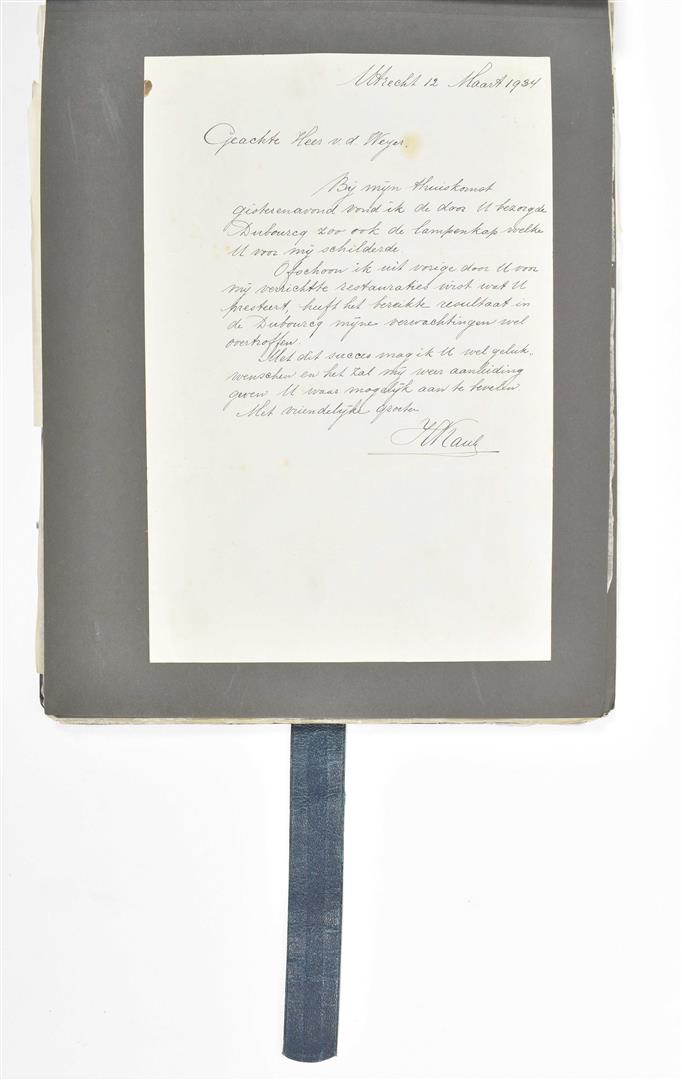 Utrecht 12 Maart 1934
Geachte Heer v. d. Weyer.
Bij mijn thuiskomst
gisterenavond vond ik de door U bezorgde
Dubourcq zoo ook de lampenkap welke
U voor mij schilderde
Ofschoon ik uit vorige door U voor
mij verrichtte restauraties wist wat U
presteert, heeft het bereikte resultaat in
de Dubourcq mijne verwachtingen wel
overtroffen.
Met dit succes mag ik U wel geluk-
wenschen en het zal mij weer aanleiding
geven U waar mogelijk aan te bevelen.
Met vriendelijke groeten